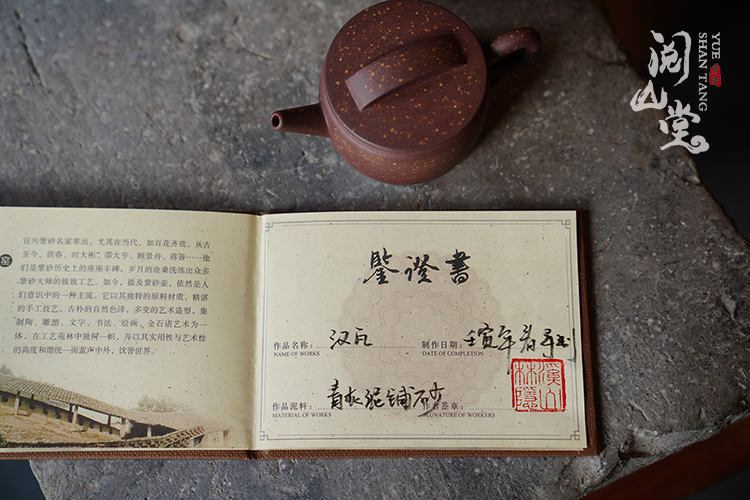 阅山堂
YUE
SHAN TANG
宜兴紫砂名家辈出，尤其在当代，如百花齐放。从古
至今，供春、时大彬、邵大亨、顾景舟、蒋蓉……他
们是紫砂历史上的座座丰碑，岁月的沧桑洗练出众多
紫砂大师的极致工艺。如今，提及紫砂壶，依然是人
们意识中的一种主流。它以其独特的原料材质，精湛
的手工技艺，古朴的自然色泽，多变的艺术造型，集
制陶、雕塑、文字、书法、绘画、金石诸艺术为一
体，在工艺苑林中独树一帜，并以其实用性与艺术性
的高度和谐统一而蜚声中外，饮誉世界。
鉴證書
作品名称：汉瓦
NAME OF WORKS
制作日期：壬寅年春
DATE OF COMPLETION
作品泥料：青水泥铺砂
MATERIAL OF WORKS
作者签章：
SIGNATURE OF WORKERS
溪山
林隐